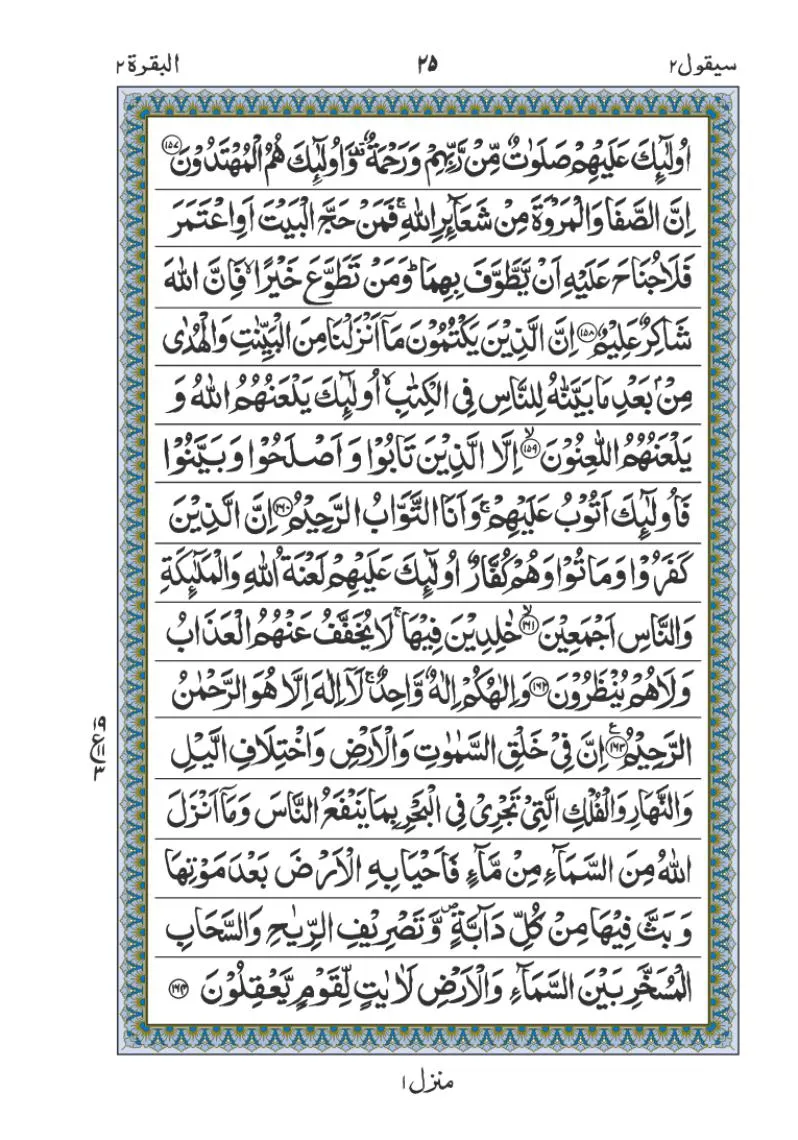 سيقول٢ ٢٥ البقرة٢
اُولٰٓئِكَ عَلَيْهِمْ صَلَوٰتٌ مِّنْ رَّبِّهِمْ وَرَحْمَةٌ ۫ وَاُولٰٓئِكَ هُمُ الْمُهْتَدُوْنَ ﴿۱۵۷﴾
اِنَّ الصَّفَا وَالْمَرْوَةَ مِنْ شَعَآئِرِ اللّٰهِ ۚ فَمَنْ حَجَّ الْبَيْتَ اَوِ اعْتَمَرَ
فَلَا جُنَاحَ عَلَيْهِ اَنْ يَّطَّوَّفَ بِهِمَا ؕ وَمَنْ تَطَوَّعَ خَيْرًا ۙ فَاِنَّ اللّٰهَ
شَاكِرٌ عَلِيْمٌ ﴿۱۵۸﴾ اِنَّ الَّذِيْنَ يَكْتُمُوْنَ مَآ اَنْزَلْنَا مِنَ الْبَيِّنٰتِ وَالْهُدٰى
مِنْۢ بَعْدِ مَا بَيَّنّٰهُ لِلنَّاسِ فِى الْكِتٰبِ ۙ اُولٰٓئِكَ يَلْعَنُهُمُ اللّٰهُ وَ
يَلْعَنُهُمُ اللّٰعِنُوْنَ ۙ﴿۱۵۹﴾ اِلَّا الَّذِيْنَ تَابُوْا وَاَصْلَحُوْا وَبَيَّنُوْا
فَاُولٰٓئِكَ اَتُوْبُ عَلَيْهِمْ ۚ وَاَنَا التَّوَّابُ الرَّحِيْمُ ﴿۱۶۰﴾ اِنَّ الَّذِيْنَ
كَفَرُوْا وَمَاتُوْا وَهُمْ كُفَّارٌ اُولٰٓئِكَ عَلَيْهِمْ لَعْنَةُ اللّٰهِ وَالْمَلٰٓئِكَةِ
وَالنَّاسِ اَجْمَعِيْنَ ۙ﴿۱۶۱﴾ خٰلِدِيْنَ فِيْهَا ۚ لَا يُخَفَّفُ عَنْهُمُ الْعَذَابُ
وَلَا هُمْ يُنْظَرُوْنَ ﴿۱۶۲﴾ وَاِلٰهُكُمْ اِلٰهٌ وَّاحِدٌ ۚ لَآ اِلٰهَ اِلَّا هُوَ الرَّحْمٰنُ
الرَّحِيْمُ ﴿۱۶۳﴾ ع اِنَّ فِىْ خَلْقِ السَّمٰوٰتِ وَالْاَرْضِ وَاخْتِلَافِ الَّيْلِ
وَالنَّهَارِ وَالْفُلْكِ الَّتِىْ تَجْرِىْ فِى الْبَحْرِ بِمَا يَنْفَعُ النَّاسَ وَمَآ اَنْزَلَ
اللّٰهُ مِنَ السَّمَآءِ مِنْ مَّآءٍ فَاَحْيَا بِهِ الْاَرْضَ بَعْدَ مَوْتِهَا
وَبَثَّ فِيْهَا مِنْ كُلِّ دَآبَّةٍ ۪ وَّتَصْرِيْفِ الرِّيٰحِ وَالسَّحَابِ
الْمُسَخَّرِ بَيْنَ السَّمَآءِ وَالْاَرْضِ لَاٰيٰتٍ لِّقَوْمٍ يَّعْقِلُوْنَ ﴿۱۶۴﴾
منزل١